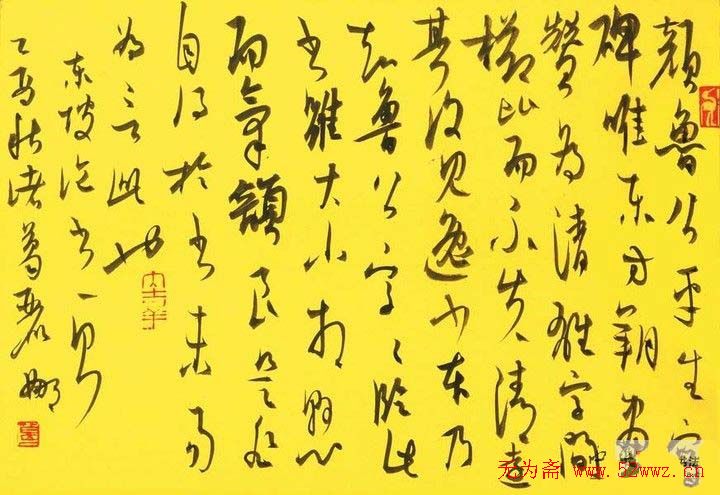 顔魯公平生写
碑唯东方朔画
赞为清雄字间
栉比而不失清远
其后见逸少本乃
知魯公字々临此
书雖大小相悬
而氣韻良是非
自得於书未易
为言此也
东坡论书一则
秋诸葛丽娜
无为斋 www.52wwz.cn